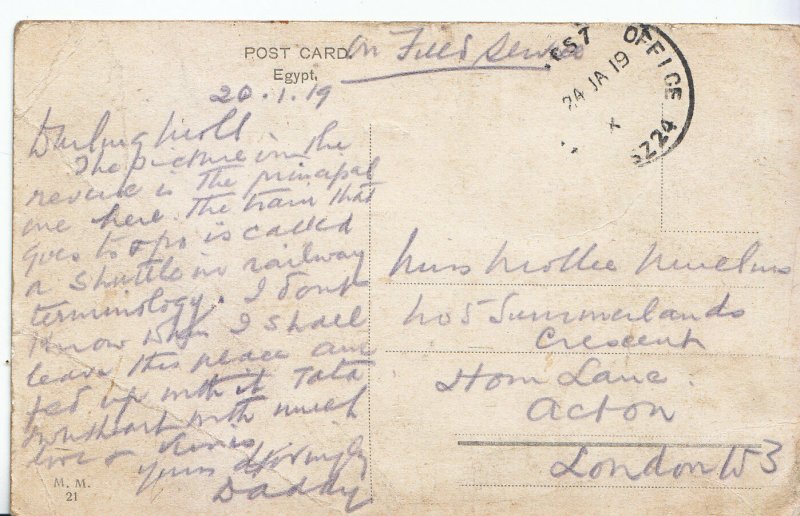 POST CARD.
On Field Service
Egypt.
20.1.19
POST OFFICE
24 JA 19
X
SZ24
Darling Moll
The picture on the
reverse is the principal
one here. The train that
goes to & fro is called
a shuttle in railway
terminology. I dont
know when I shall
leave this place am
fed up with it Tata
sweetheart with much
love & kisses
yours lovingly
Daddy
Miss Mollie
No 5 Summerlands
Crescent
Horn Lane.
Acton
London W3
M. M.
21